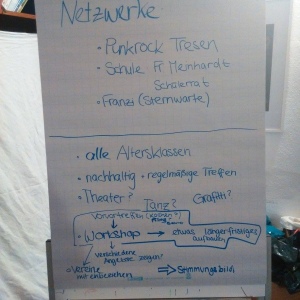 Netzwerke
• Punkrock Tresen
• Schule Fr Meinhardt
Schülerrat
• Franzi (Sternwarte)
• alle Altersklassen
• nachhaltig • regelmäßige Treffen
• Theater? Tanz? Grafiti?
Vorvortreffen (kochen?)
• Workshop → etwas längerfristiges
aufbauen
verschiedene
Angebote zeigen?
Vereine
mit einbeziehen
⇒ Stimmungsbild